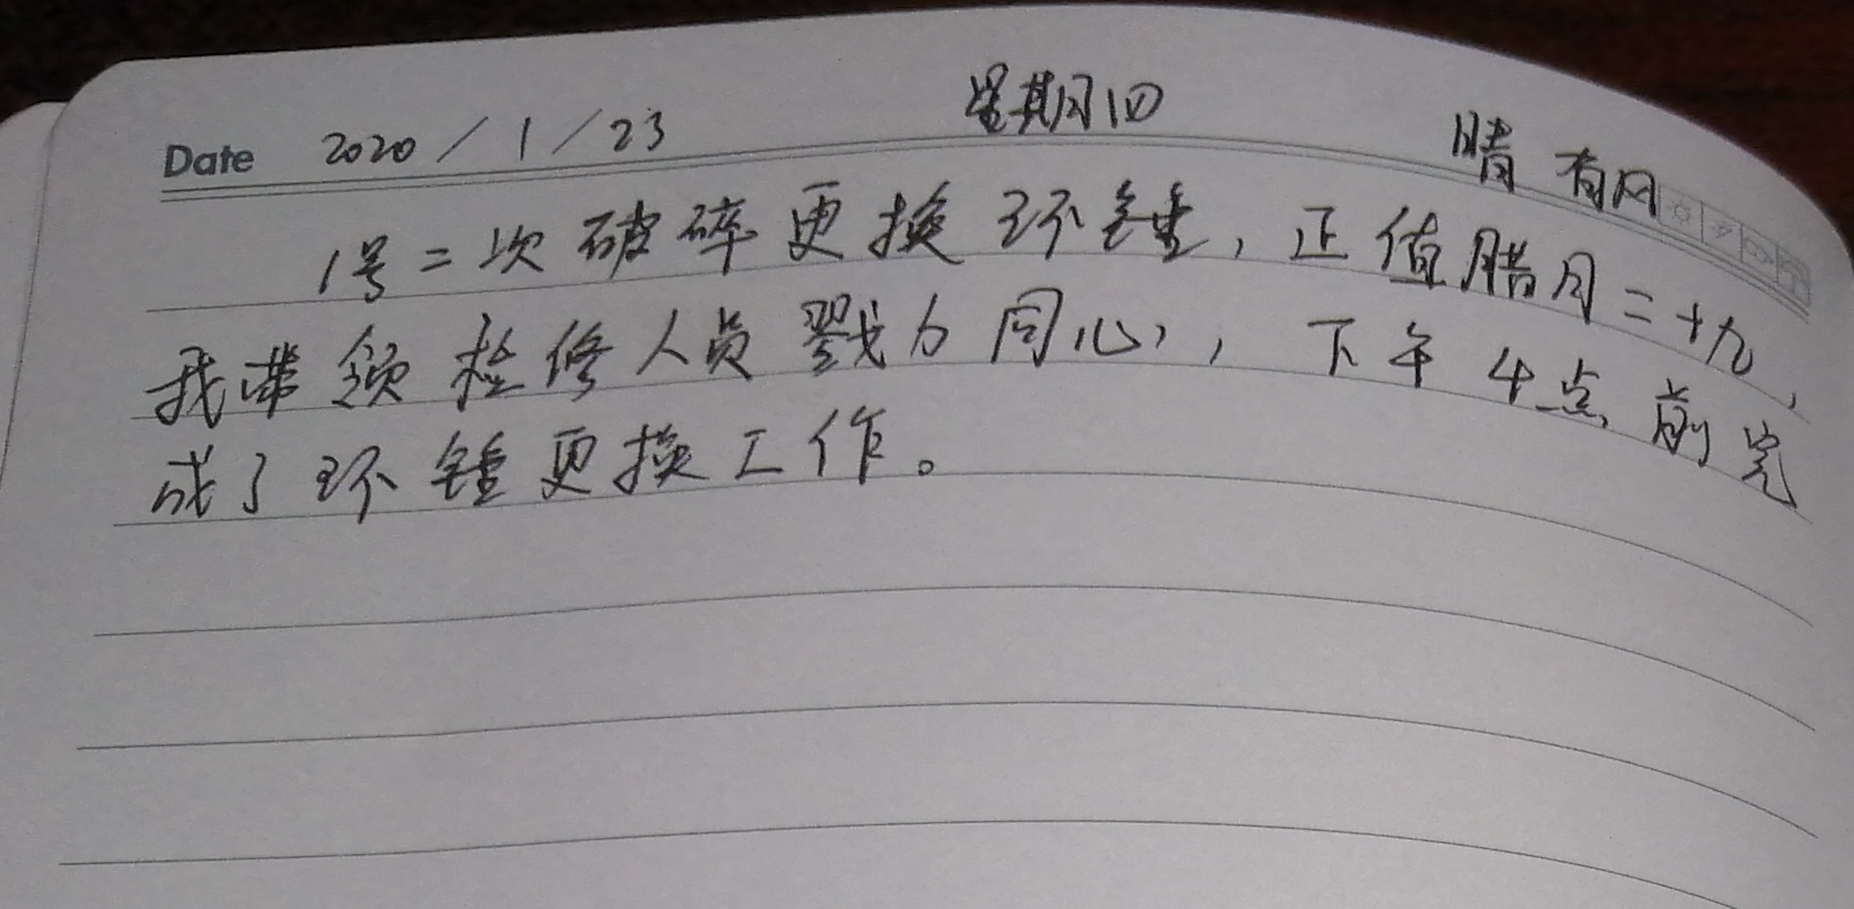 Date 2020/1/23 星期四 晴 有风
1号二次破碎更换环锤，正值腊月二十九，
我带领检修人员戮力同心，下午4点前完
成了环锤更换工作。